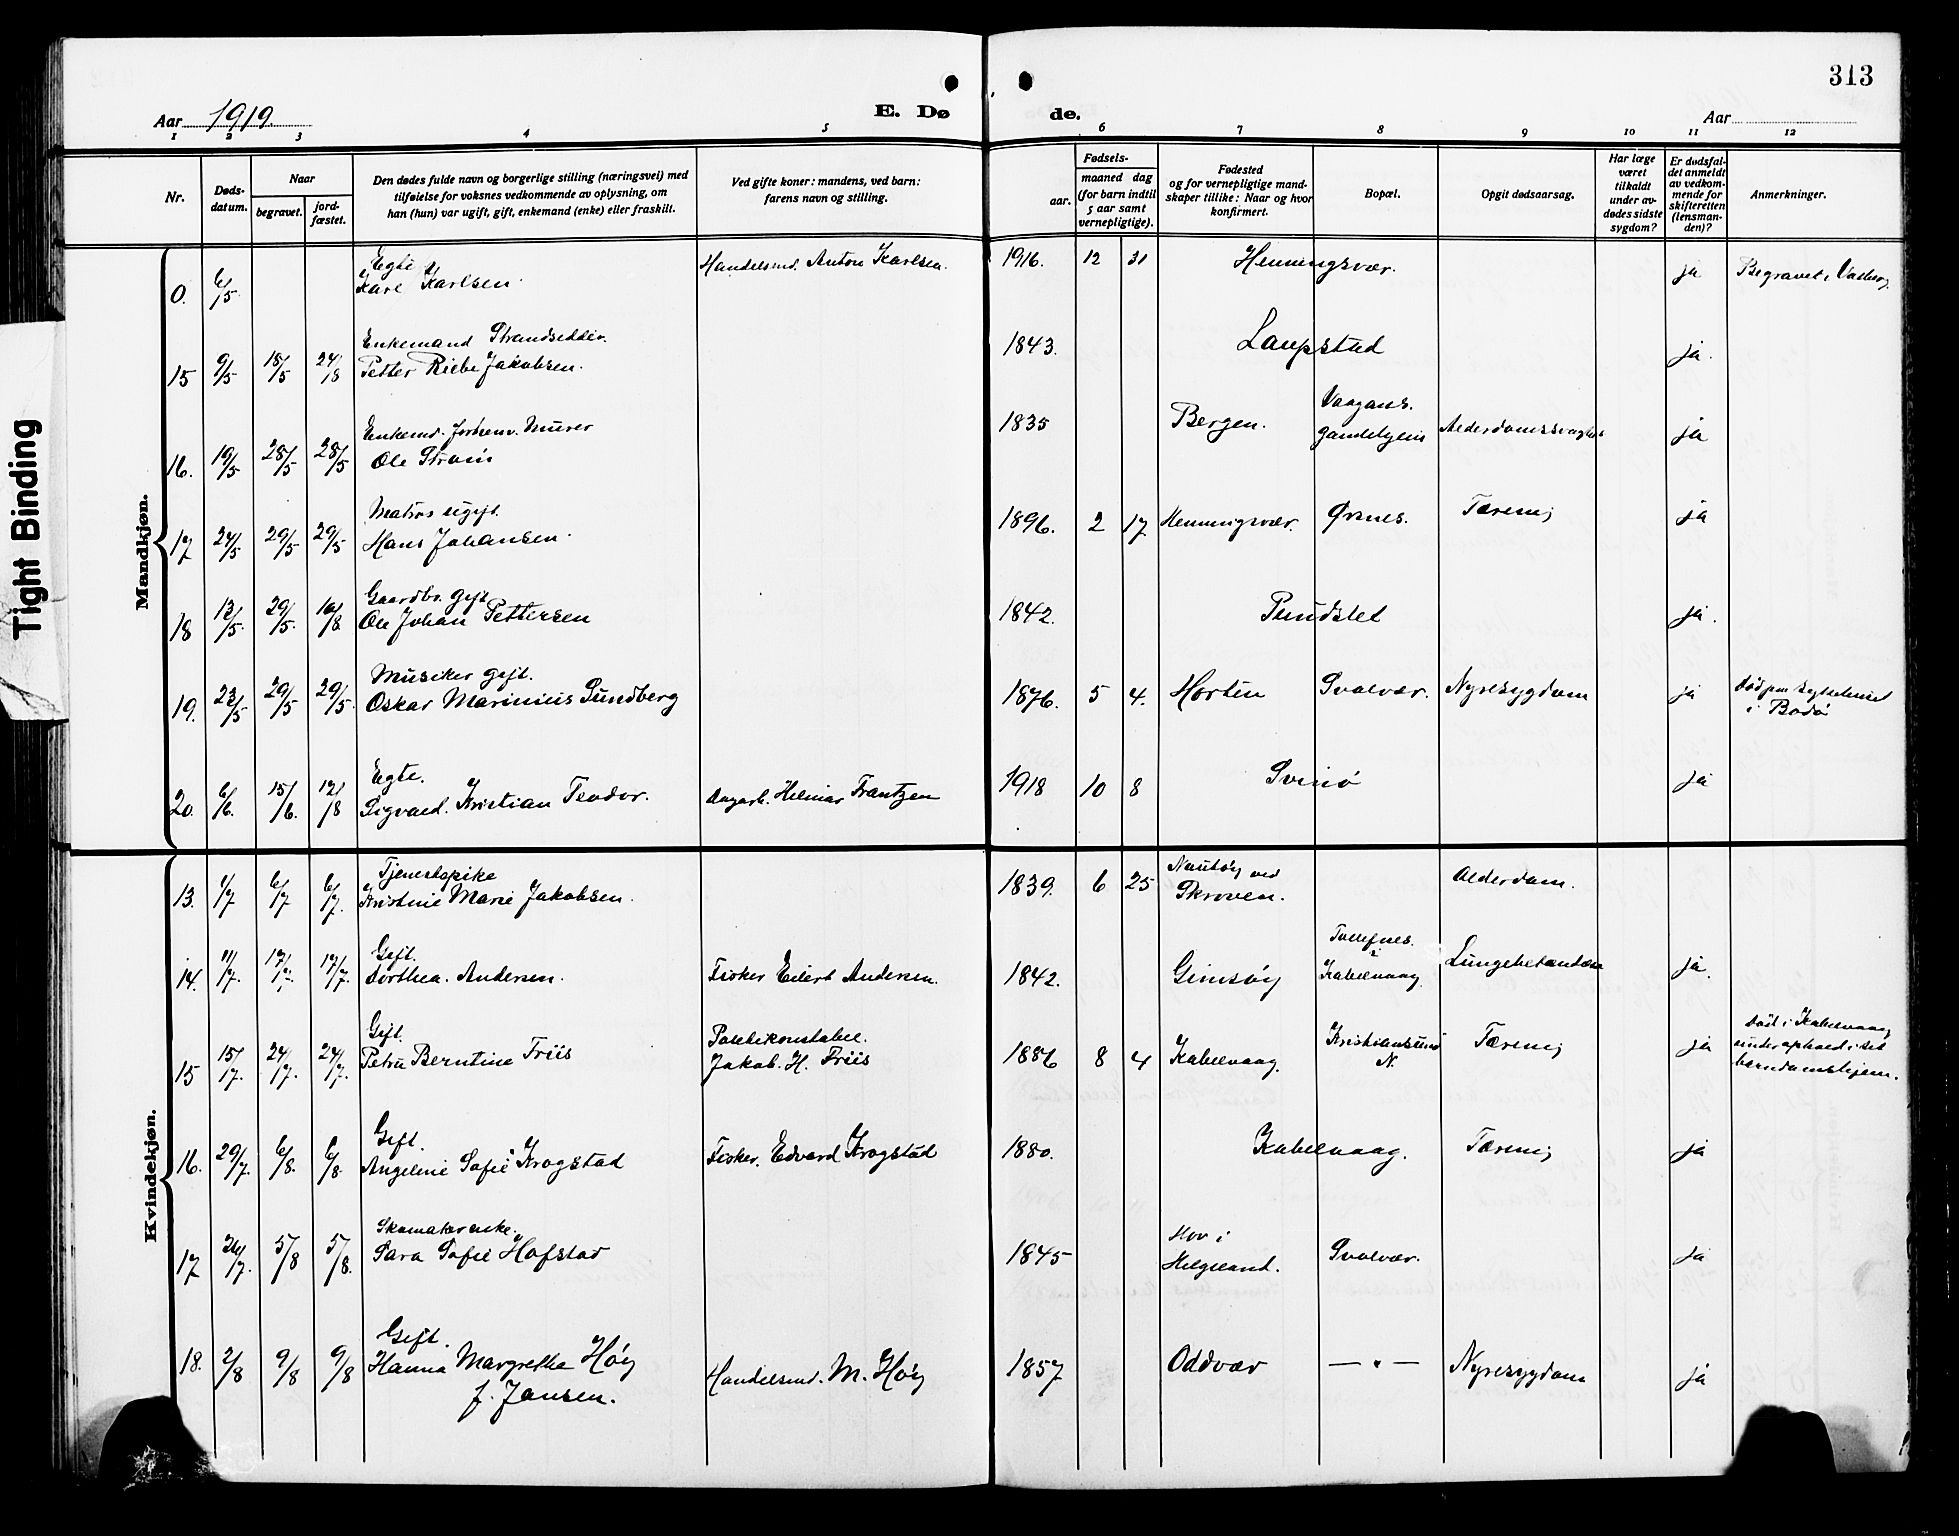 Tight Binding
313
Aar 1919.
E. Dø
de.
Aar
1 2 3 4 5 6 7 8 9 10 11 12
Nr.
Døds-
datum.
Naar
begravet.
jord-
fæstet.
Den dødes fulde navn og borgerlige stilling (næringsvei) med
tilføielse for voksnes vedkommende av oplysning, om
han (hun) var ugift, gift, enkemand (enke) eller fraskilt.
Ved gifte koner: mandens, ved barn:
farens navn og stilling.
Fødsels-
aar.
maaned dag
(for barn indtil
5 aar samt
vernepligtige).
Fødested
og for vernepligtige mand-
skaper tillike: Naar og hvor
konfirmert.
Bopæl.
Opgit dødsaarsag.
Har læge
været
tilkaldt
under av-
dødes sidste
sygdom?
Er dødsfal-
det anmeldt
av vedkom-
mende for
skifteretten
(lensman-
den)?
Anmerkninger.
Mandkjøn.
0. 6/5 Egte Kåre Karlsen. Handelsmd. Anton Karlsen. 1916. 12 31 Henningsvær. ja Begravet i Valberg.
15 9/5 18/5 24/8 Enkemand Strandsidder.
Petter Riebe Jakobsen. 1843. Laupstad ja.
16. 19/5 28/5 28/5 Enkemd. Murer
Ole Strøm 1835 Bergen. Vaagans.
gamlehjem Alderdomssvaghet ja
17 24/5 29/5 29/5 Matros ugift.
Hans Johansen. 1896. 2 17 Henningsvær. Ørsnes. Tæring ja
18 13/5 29/5. 10/8 Gaardbr. gift
Ole Johan Pettersen 1842. Pundslet ja.
19. 23/5 29/5 29/5. Musiker gift.
Oskar Marinius Sundberg 1876. 5 4. Horten Svolvær. Nyresygdom ja Død paa sykehuset
i Bodø
20. 6/6. 15/6. 12/8 Egte.
Sigvald. Kristian Teodor. Hilmar Frantzen 1918 10 8 Svinø ja
Kvindekjøn.
13. 1/7 6/7 6/7. Tjenestepike
Kristine Marie Jakobsen. 1839. 6 25 ved
Skroven. Alderdom.
14. 11/7. 17/7. 17/7. Gift.
Dorthea. Andersen. Fisker Eilert Andersen. 1842. Gimsøy
Kabelvaag. Lungebetændelse ja.
15 15/7. 24/7. 24/7. Gift.
Petra Berntine Friis Politikonstabel.
Jakob. H. Friis 1886 8 4 Kabelvaag. Kristiansund
N. Tæring ja Død i Kabelvaag
under ophold i sit
barndomshjem.
16. 29/7. 6/8. 6/8. Gift.
Angeline Sofie Krogstad Fisker. Edvard Krogstad 1880. Kabelvaag. Tæring ja
17 26/7. 5/8 5/8. Skomakerenke.
Sara Sofie Hofstad 1845 Hov i
Helgeland. Svolvær. ja
18. 2/8 9/8 9/8 Gift.
Hanna Margrethe Høy
f. Jansen. Handelsmd. M. Høy 1857 Oddvær — " — Nyresygdom ja